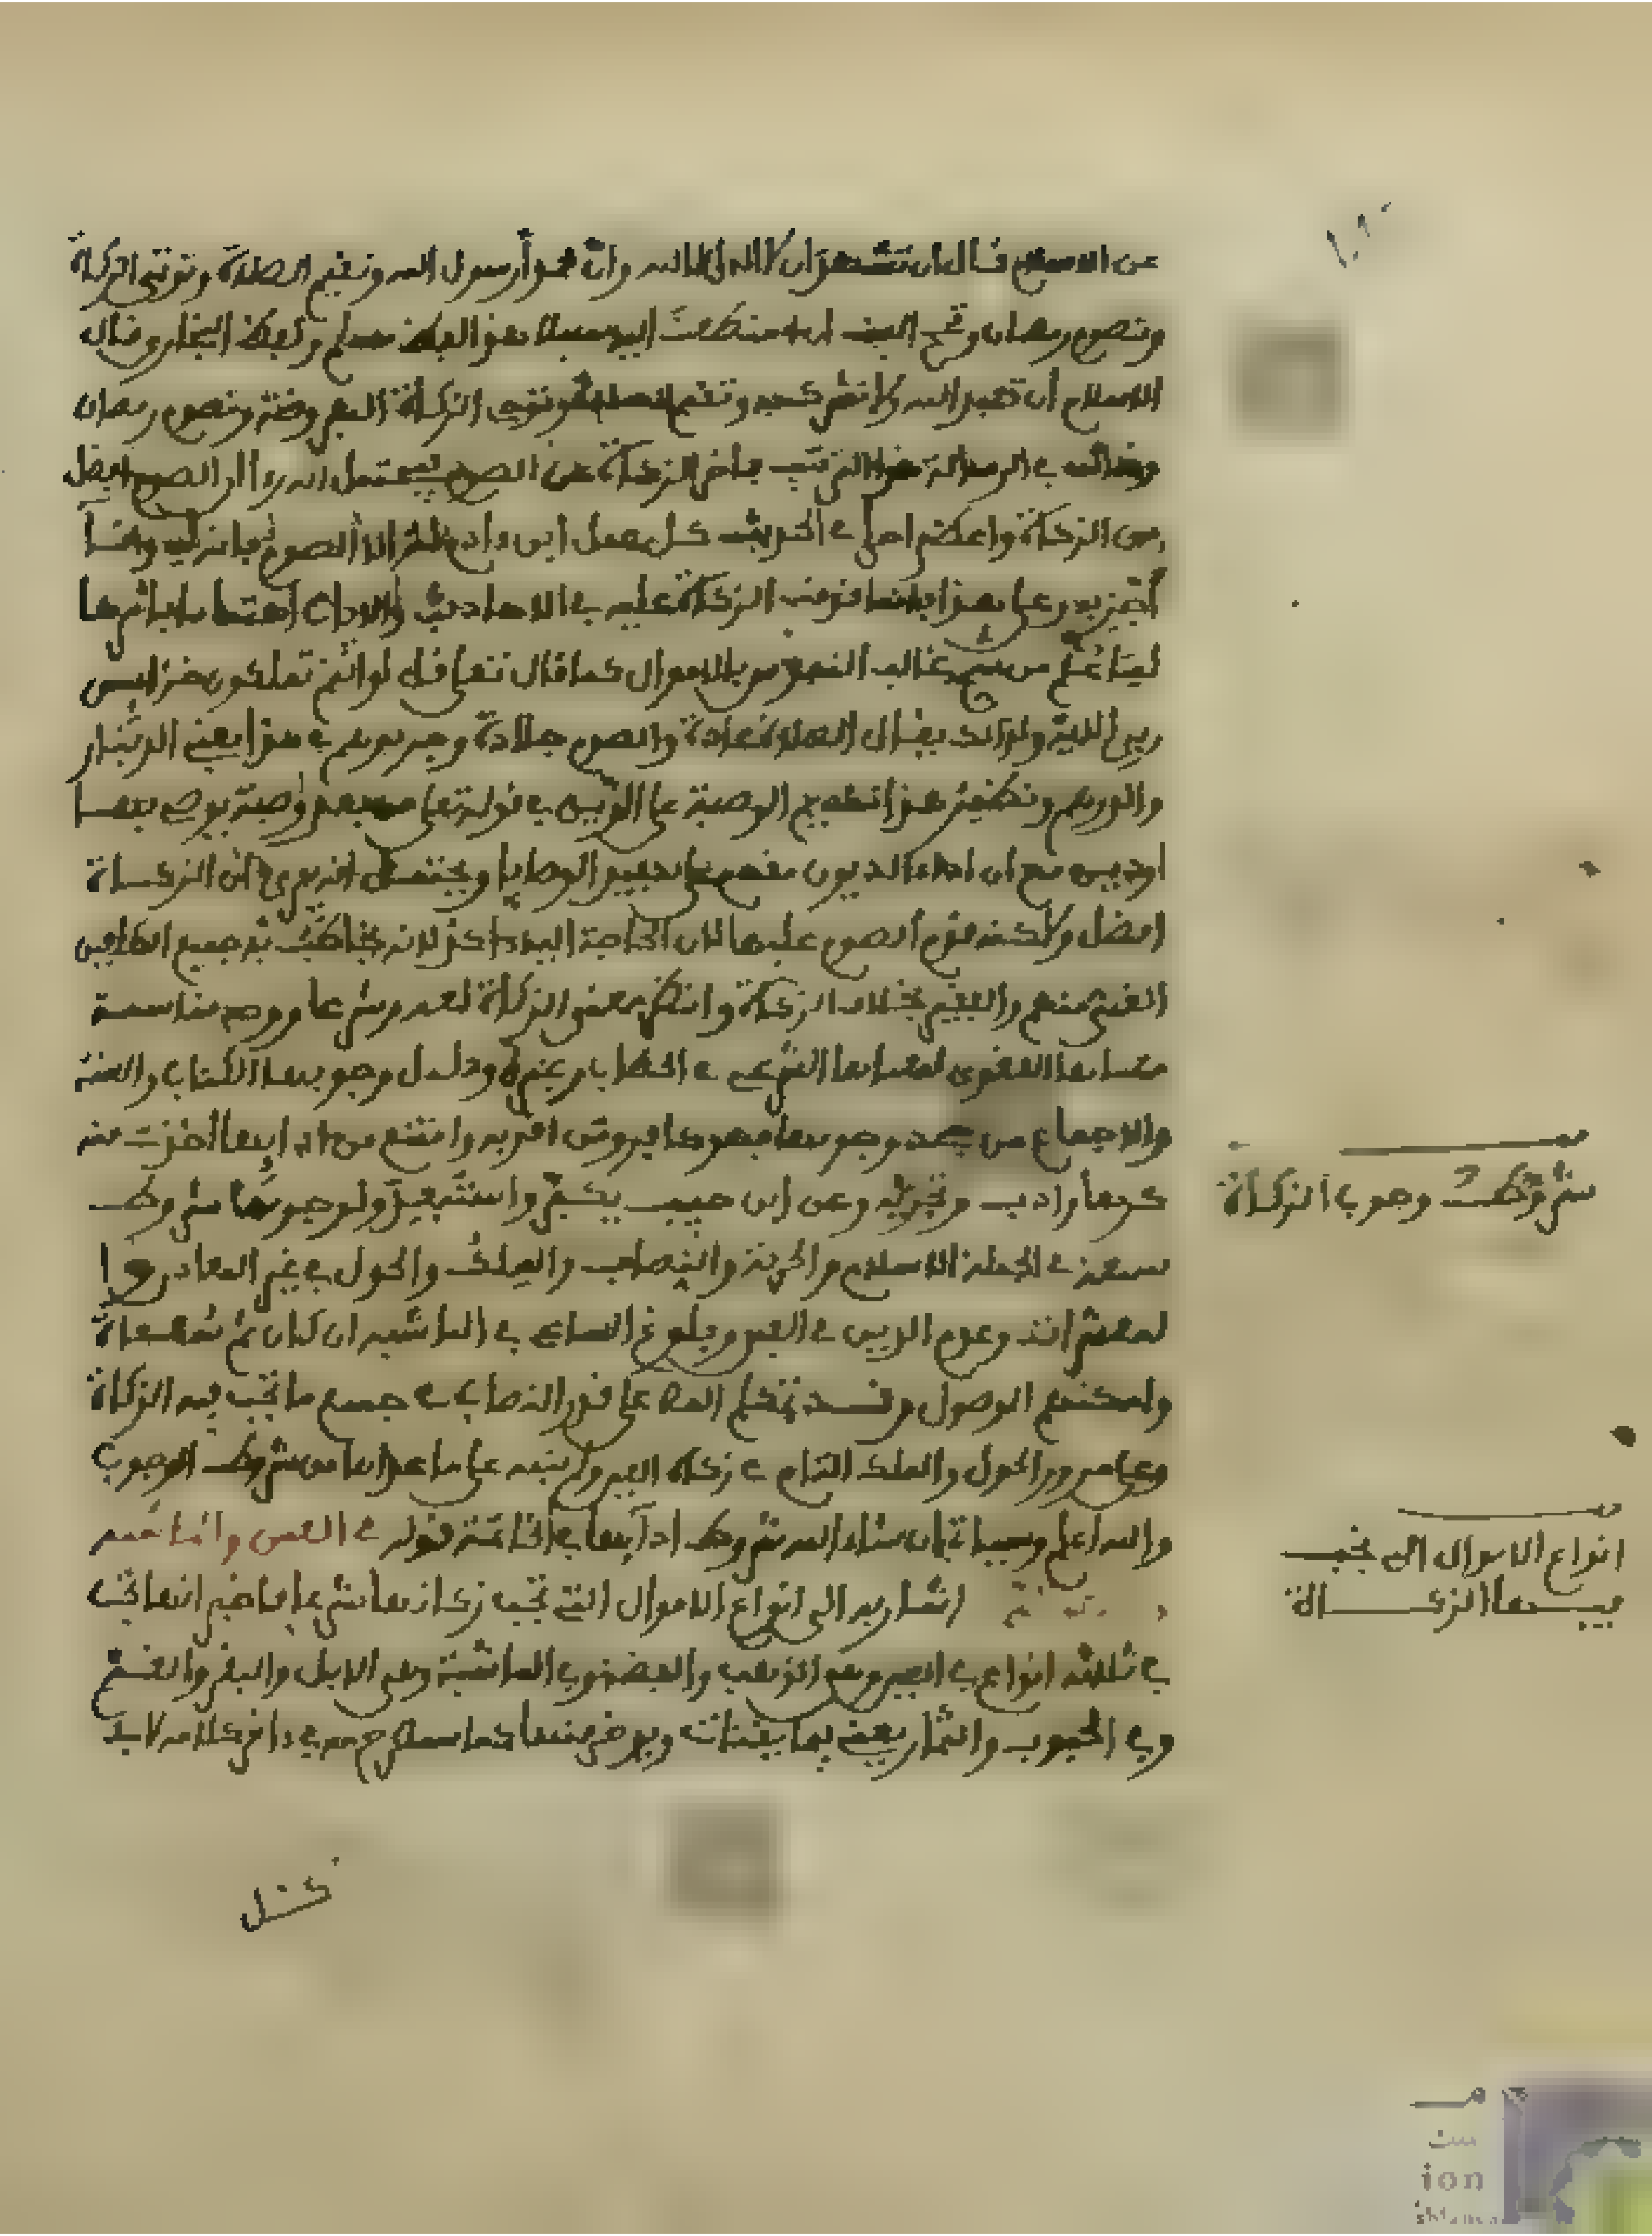 عن الاسلام فقال ان تشهد ان لا اله الا الله وان محمدا رسول الله وتقيم الصلاة وتوتي الزكاة
وتصوم رمضان وتحج البيت ان استطعت اليه سبيلا هذا لفظ مسلم ولفظ البخاري وقال
الاسلام أن تعبد الله ولا تشرك به وتقيم الصلاة وتوتي الزكاة المفروضة وتصوم رمضان
في الرسالة هذا الترتيب الزكاة عن الصوم يحتمل انه رءا ان الصوم افضل
من الزكاة واعظم اجرا في الحديث كل عمل ابن ءادم له الا الصوم فانه لي وانا
أجزي به وعلى هذا فانما قدمت الزكاة عليه في الاحاديث اهتماما بامرها
لما علم من شح غالب النفوس بالاموال كما قال تعلى قل لو انتم تملكون خزاين
ربي الاية ولذلك يقال الصلاة عادة والصوم جلادة في هذا يعني الدينار
والدرهم ونظير هذا تقديم الوصية على الدين في قوله تعلى من بعد وصية يوصي بها
او دين مع ان اداء الديون مقدم على الوصايا ويحتمل انه يرى ان الزكاة
افضل ولاكنه قدم الصوم عليها لان الحاجة اليه ءاكد لانه يخاطب به جميع المكلفين
الغني منهم والفقير بخلاف الزكاة وانظر معنى الزكاة لغة وشرعا ووجه مناسبة
معناها اللغوي لمعناها الشرعي في الحطاب وغيره ودليل وجوبها الكتاب والسنة
والاجماع من جحد وجوبها فهو كافر ومن اقر به وامتنع من ادايها اخذت منه
كرها وادب وعن ابن حبيب يكفر واستبعد ولوجوبها شروط
سبعة في الجملة الاسلام والحرية والنصاب والملك والحول في غير المعادن
المعشرات وعدم الدين في العين وبلوغ الساعي في الماشية ان كان ثم سعاة
وامكنهم الوصول وقد تكلم الناظم على قدر النصاب في جميع ما تجب فيه الزكاة
وعلى مرور الحول والملك التام في زكاة العين ولم ينبه على ما عداها من شروط الوجوب
والله اعلم وسياتي ان شاء الله شروط ادايها في الخاتمة قوله في العين والماشية
اشار به الى انواع الاموال التي تجب زكاتها شرعا فاخبر انها تجب
في ثلاثة انواع في العين وهو الذهب والفضة وفي الماشية وهي الابل والبقر والغنم
وفي الحبوب والثمار يعني مما يقتات ويدخر منها كما سيصرح به في ءاخر كلامه لابد
شروط وجوب الزكاة
انواع الاموال التي تجب
فيها الزكاة
ion